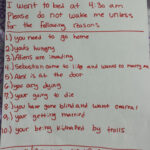 I Want to bed at 4:30 am
Please do not wake me unless
for the following reasons
1) you need to go home
2) you're hungry
3) Aliens are invading
4) Sebastian came to life and wants to marry me
5) Alex is at the door
6) your dying
7) your going to die
8) you have gone blind and want
9) your getting married
10) your being kidnapped by trolls